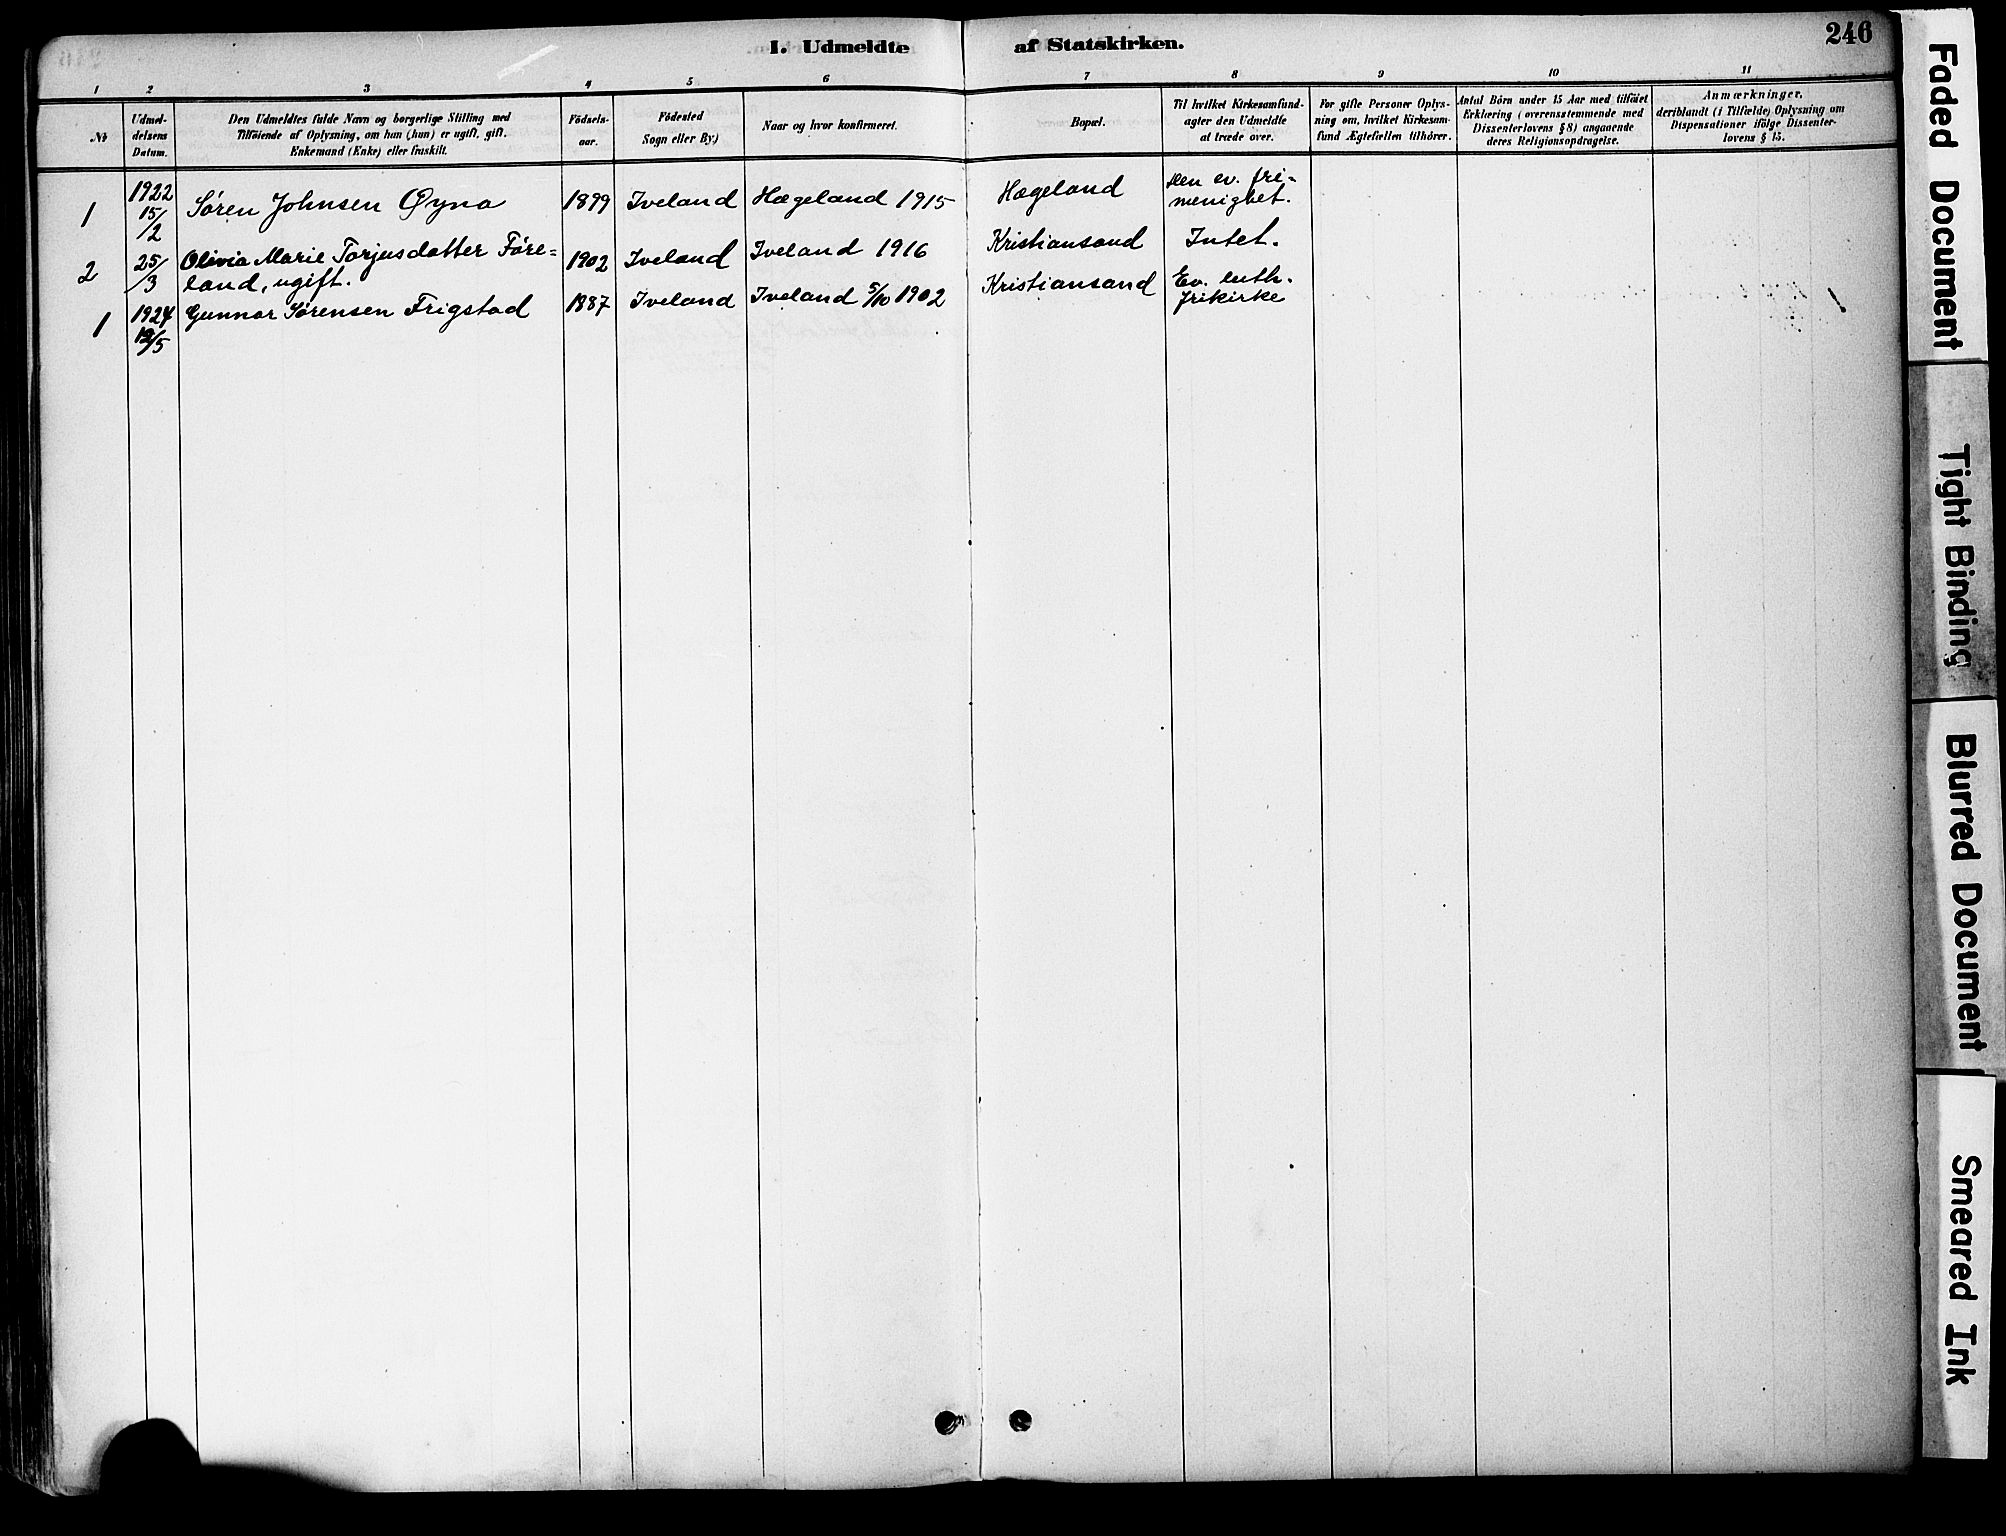 I. Udmeldte af Statskirken. 246
1 2 3 4 5 6 7 8 9 10 11
№
Udmel-
delsens
Datum.
Den Udmeldtes fulde Navn og borgerlige Stilling med
Tilføiende af Oplysning, om han (hun) er ugift, gift,
Enkemand (Enke) eller fraskilt.
Fødsels-
aar.
Fødested
Sogn eller By.)
Naar og hvor konfirmeret.
Bopæl.
Til hvilket Kirkesamfund
agter den Udmeldte
at træde over.
For gifte Personer Oplys-
ning om, hvilket Kirkesam-
fund Ægtefællen tilhører.
Antal Børn under 15 Aar med tilføiet
Erklæring (overensstemmende med
Dissenterlovens § 8) angaaende
deres Religionsopdragelse.
Anmærkninger,
deriblandt (i Tilfælde) Oplysning om
Dispensationer ifølge Dissenter-
lovens § 15.
1 1922 15/2 Søren Johnsen Øyna 1899 Iveland Hægeland 1915 Hægeland Den ev. fri-
menighet.
2 25/3 Olivia Marie Torjusdatter Føre- 1902 Iveland Iveland 1916 Kristiansand Intet.
land, ugift.
1 1924 /5 Gunnar Sørensen Frigstad 1887 Iveland Iveland 5/10 1902 Kristiansand Ev. luth.
frikirke
Faded Document
Tight Binding
Blurred Document
Smeared Ink